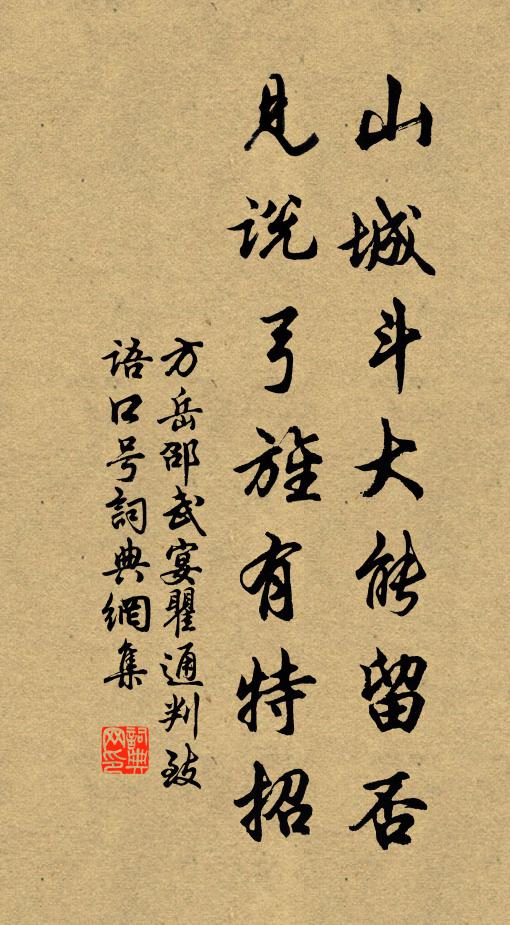 山城斗大能留否
见说弓旌有特招
方岳邵武宴瞿通判致
语口号詞典網集
詞典网印